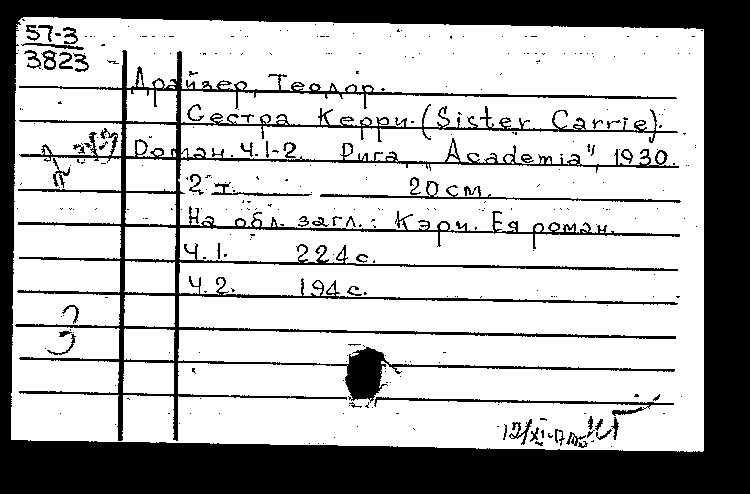 57-3
3823
Драйзер, Теодор.
Сестра Керри. (Sister Carrie).
Роман. Ч.1-2. Рига, "Academia", 1930.
2 т. 20 см.
На обл. загл.: Кэри. Ея роман.
Ч.1. 224 с.
Ч.2. 194 с.
3